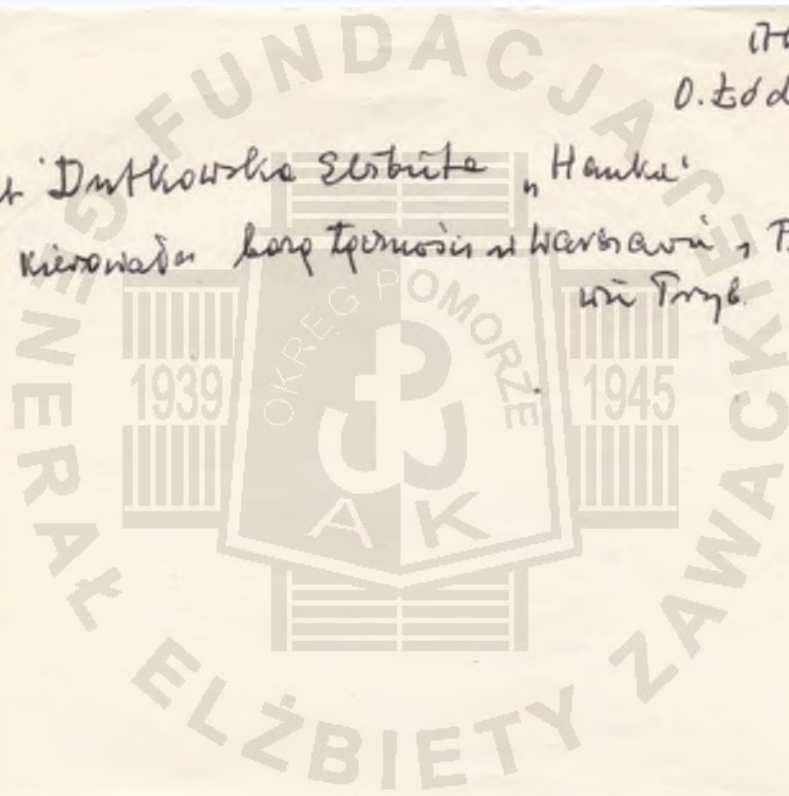 O. Łód
Dutkowska Elżbieta „Hanka"
Kierowała bazą łączności w Warszawie,
Tryb.
FUNDACJA GENERAŁ ELŻBIETY ZAWACKIEJ
OKRĘG POMORZE
1939
1945
AK